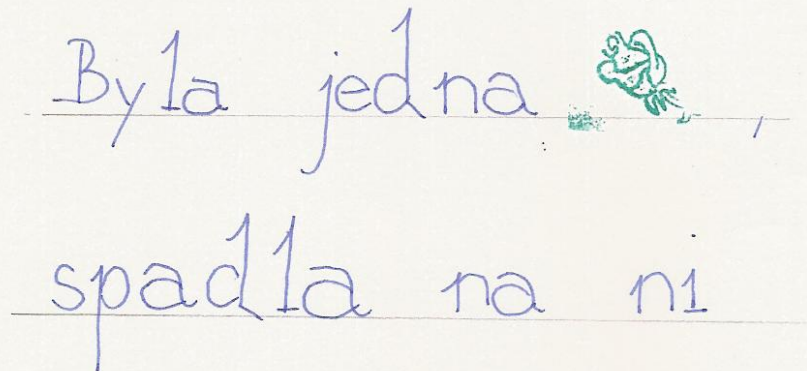 Byla jedna ,
spadla na ni